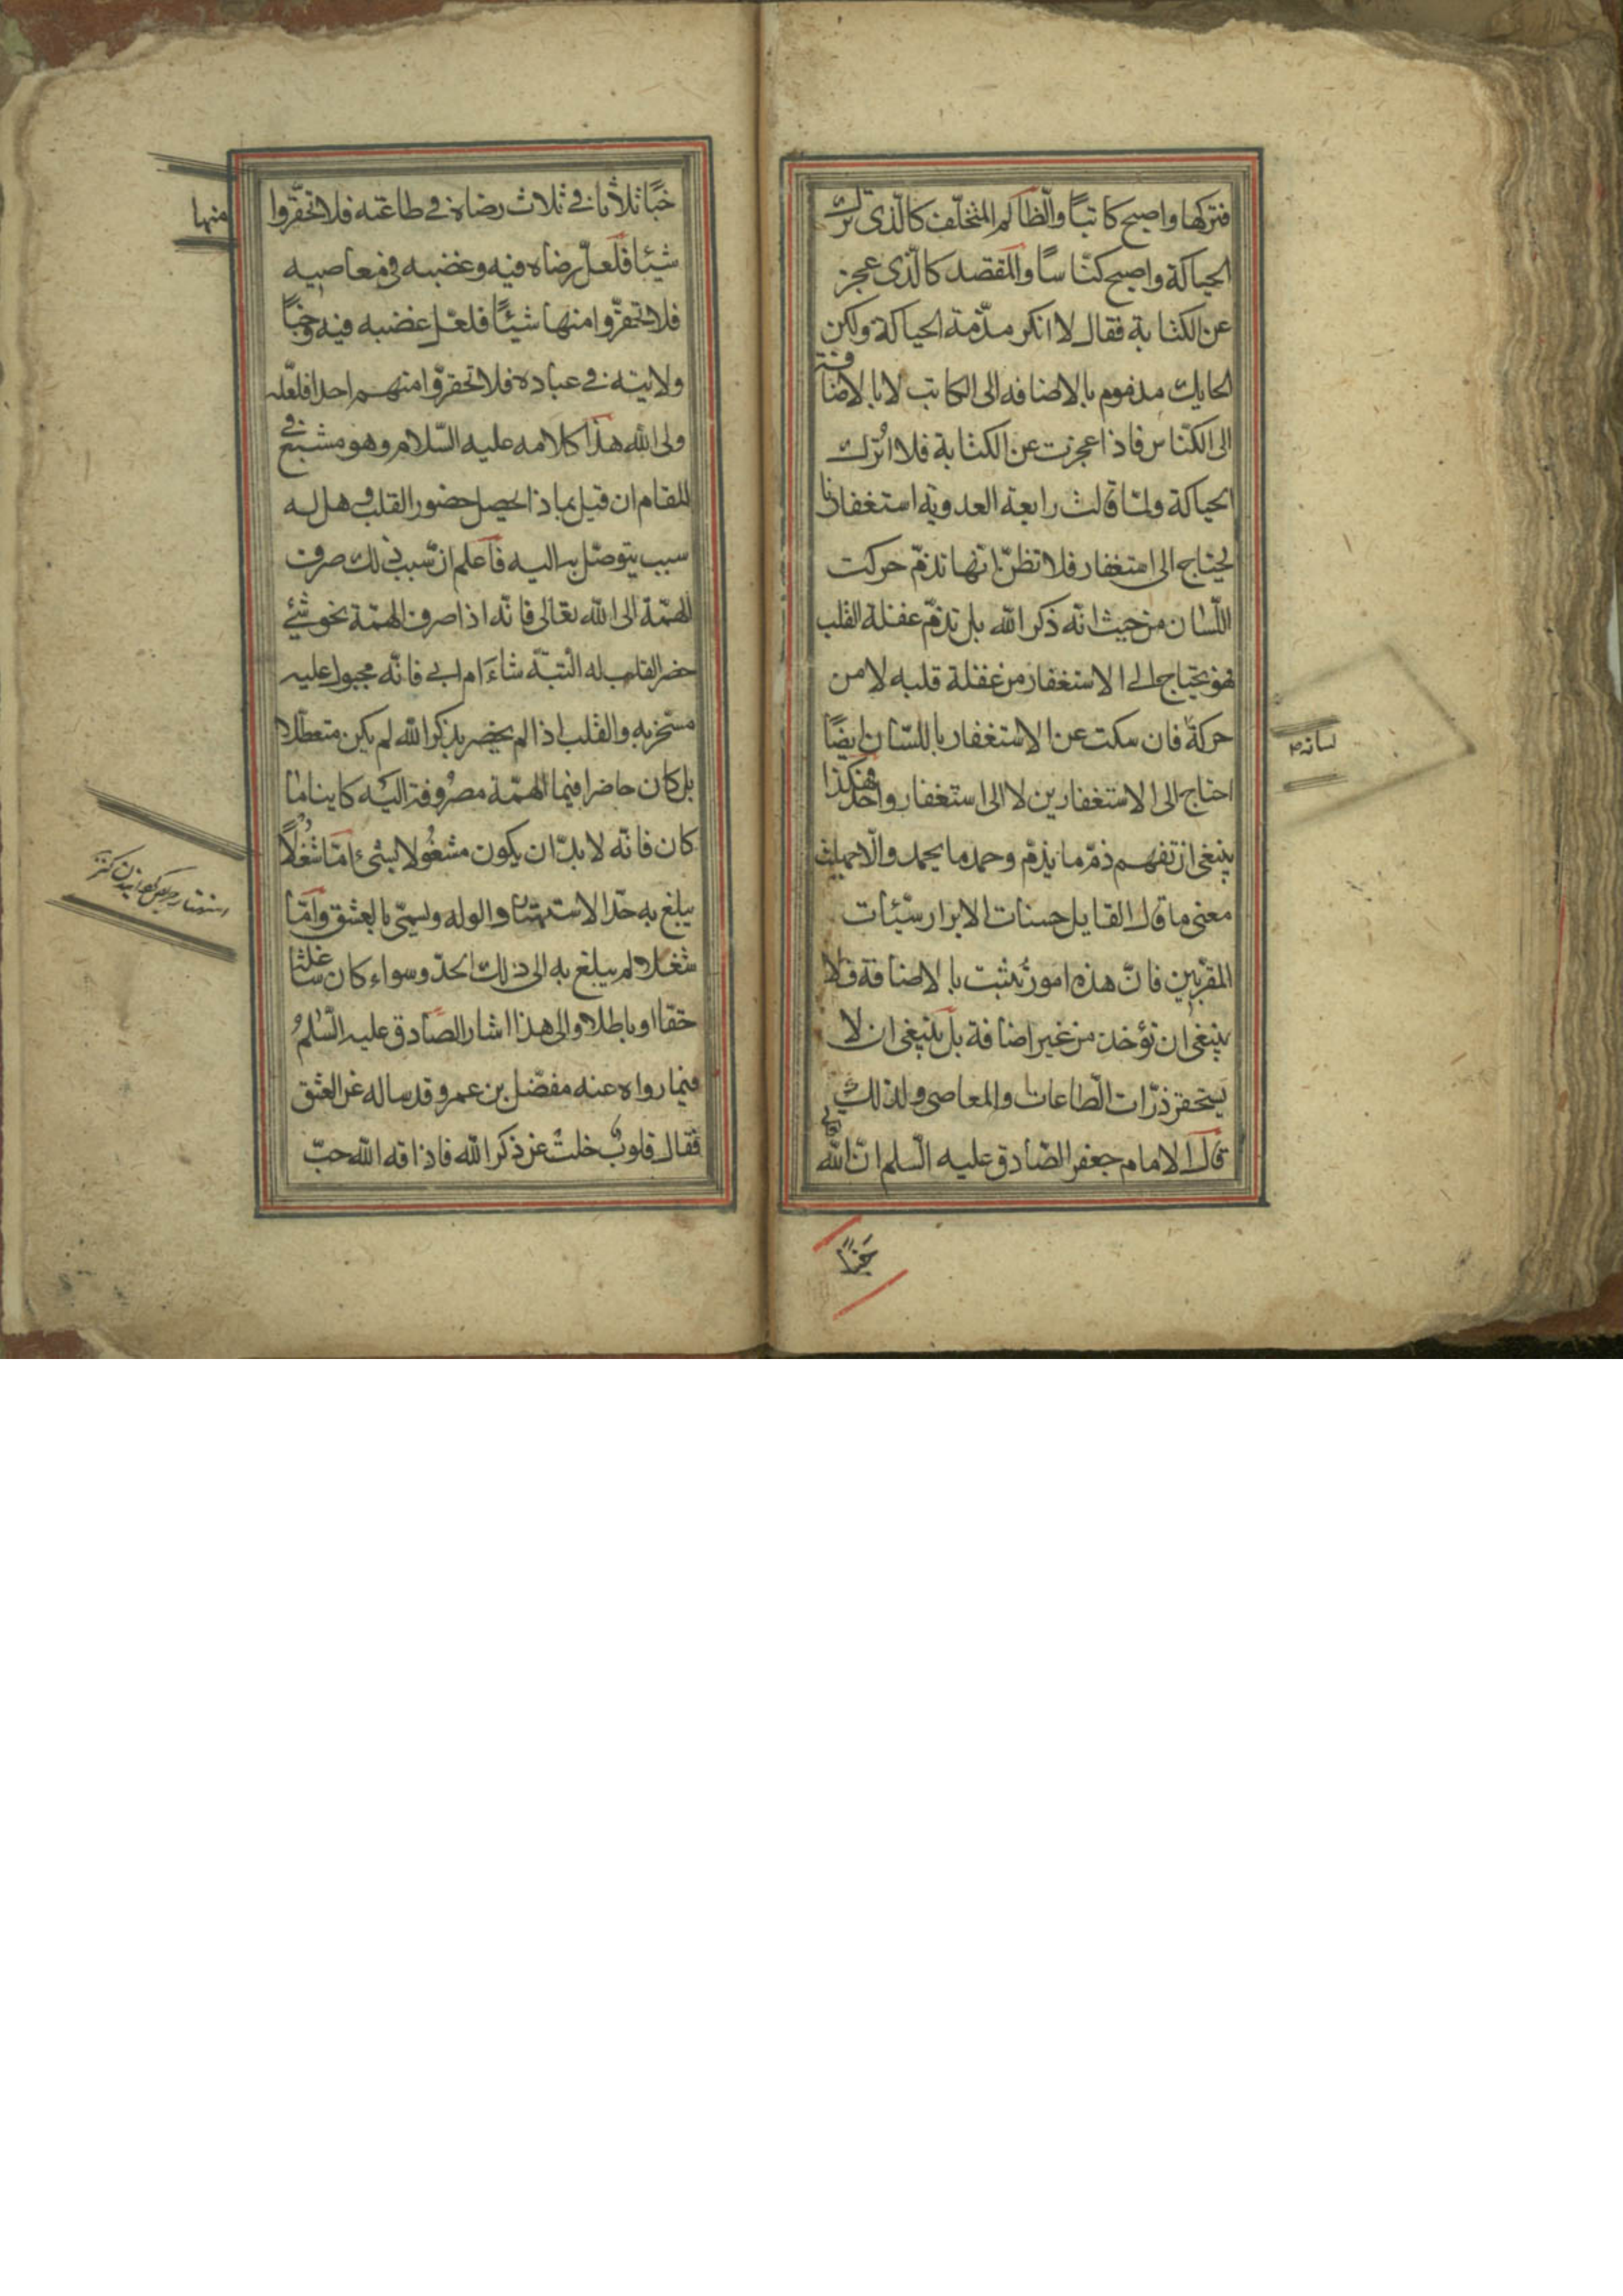 فتركها واصبح كاتبًا والظالم المتخلّف كالّذى ترك
الحياكة واصبح كنّاسًا والمقتصد كالّذى عجز
عن الكتابة فقال لا انكر مذّمة الحياكة ولكن
الحايك مذموم بالاضافه الى الكاتب لا بالاضافة
الى الكنّاس فاذا عجزت عن الكتابة فلا اترك
الحياكة ولمّا قالت رابعة العدوية استغفارنا
يحتاج الى استغفار فلا تظنّ انّها تذمّ حركت
اللّسان من حيث انّه ذكر الله بل تذمّ غفلة القلب
فهو يحتاج الى الاستغفار من غفلة قلبه لا من
حركة فان سكت عن الاستغفار باللسّان ايضًا
لسانه
احتاج الى الاستغفارين لا الى استغفار واحد فهكذا
ينبغى ان تفهم ذمّ ما يذمّ وحمد ما يحمد والّا جهلت
معنى ما قال القايل حسنات الابرار سيّئات
المقرّبين فانّ هذه امور تثبت بالاضافة فلا
ينبغى ان تؤخذ من غير اضافة بل ينبغى ان لا
يستحقر ذرّات الطّاعات والمعاصى ولذلك
قال الامام جعفر الصّادق عليه السّلم انّ الله
خبًا
خبًا ثلاثا فى ثلاث رضاه فى طاعته فلا تحقّروا
منها
شيئا فلعلّ رضاه فيه وغضبه فى معاصيه
فلا تحقّروا منها شيئًا فلعّل غضبه فيه وخبًا
ولايته فى عباده فلا تحقرّوا منهم احدا فلعّله
ولى الله هذا كلامه عليه السّلام وهو مشبع فى
المقام ان قيل بماذا يحصل حضور القلب وهل له
سبب يتوصّل به اليه فاعلم انّ سبب ذلك صرف
الهمّة الى الله تعالى فانّه اذا صرف الهمّة نحو شئ
حضر القلب له البتّة شاءَ ام ابى فانّه مجبول عليه
مسخّر به والقلب اذا لم يحضر بذكر الله لم يكن متعطّلا
بل كان حاضرا فيما الهمّة مصروفة اليه كاينا ما
كان فانّه لا بدّ ان يكون مشغولا بشئ امّا شغلًا
يبلغ به حدّ الاستهتار والوله ويسمّى بالعشق وامّا
شغلا لم يبلغ به الى ذلك الحدّ وسواء كان شاغلا
حقّا او باطلا والى هذا اشار الصّادق عليه السّلم
فيما رواه عنه مفضّل بن عمرو قد ساله عن العشق
فقال قلوبٌ خلت عن ذكر الله فاذاقه الله حبّ